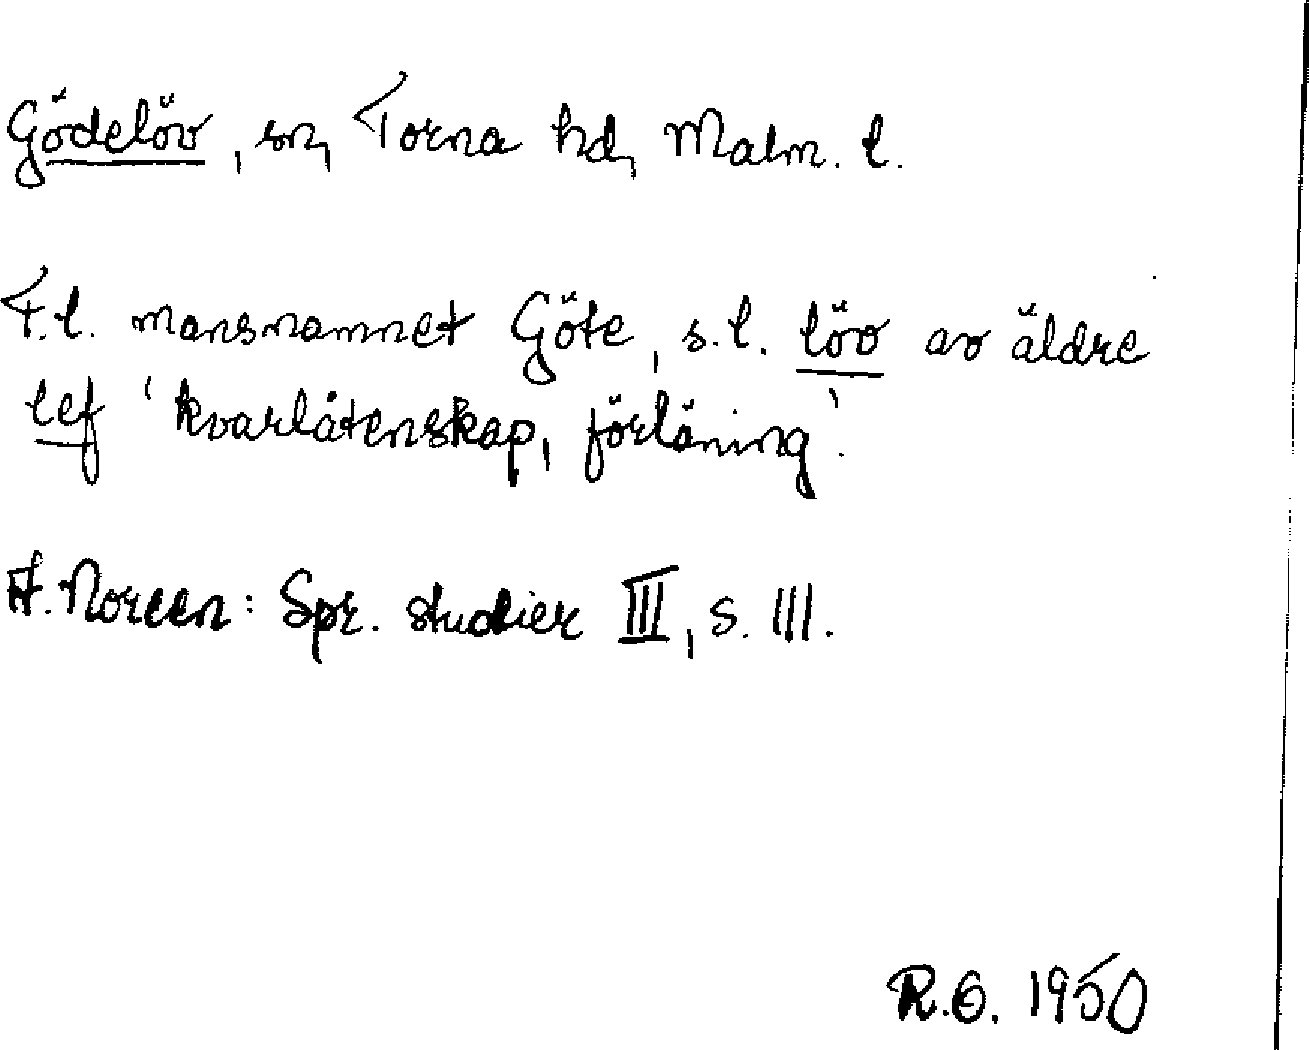 Gödelöv, sn, Torna hd, Malm. l.
F.l. mansnamnet Göte, s.l. löv av äldre
lef 'kvarlåtenskap, förläning'.
A. Noreen: Spr. studier III, s. 111.
R.G. 1950